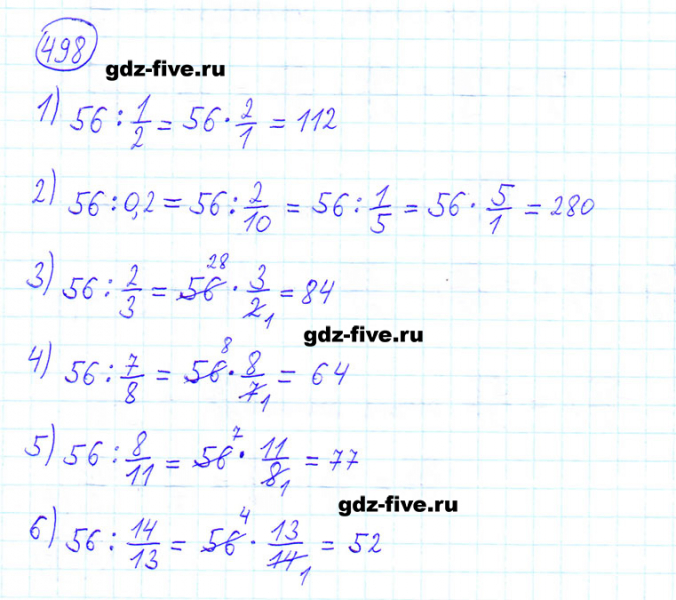 498
gdz-five.ru
1) 56 : 1/2 = 56 · 2/1 = 112
2) 56 : 0,2 = 56 : 2/10 = 56 : 1/5 = 56 · 5/1 = 280
3) 56 : 2/3 = 56 28 · 3/2 1 = 84
gdz-five.ru
4) 56 : 7/8 = 56 8 · 8/7 1 = 64
5) 56 : 8/11 = 56 7 · 11/8 1 = 77
gdz-five.ru
6) 56 : 14/13 = 56 4 · 13/14 1 = 52